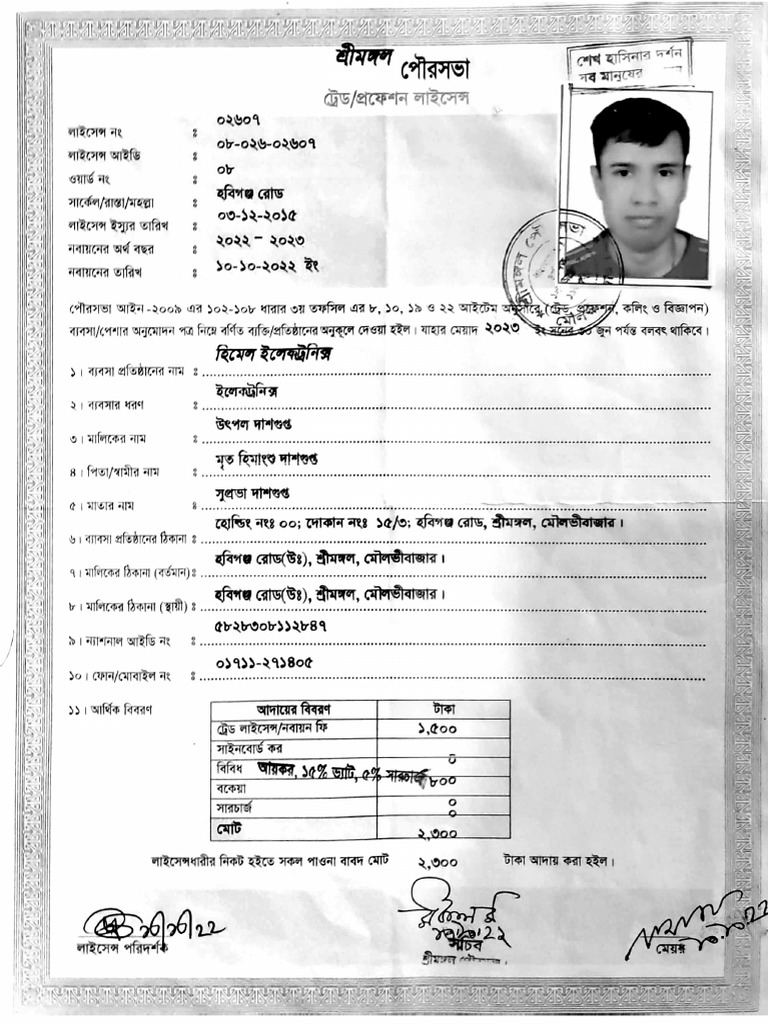 শ্রীমঙ্গল পৌরসভা
শেখ হাসিনার দর্শন
সব মানুষের
ট্রেড/প্রফেশন লাইসেন্স
লাইসেন্স নং : ০২৬০৭
লাইসেন্স আইডি : ০৮-০২৬-০২৬০৭
ওয়ার্ড নং : ০৮
সার্কেল/রাস্তা/মহল্লা : হবিগঞ্জ রোড
লাইসেন্স ইস্যুর তারিখ : ০৩-১২-২০১৫
নবায়নের অর্থ বছর : ২০২২ - ২০২৩
নবায়নের তারিখ : ১০-১০-২০২২ ইং
পৌরসভা আইন -২০০৯ এর ১০২-১০৮ ধারার ৩য় তফসিল এর ৮, ১০, ১৯ ও ২২ আইটেম অনুসারে (ট্রেড, প্রফেশন, কলিং ও বিজ্ঞাপন)
ব্যবসা/পেশার অনুমোদন পত্র নিম্নে বর্ণিত ব্যক্তি/প্রতিষ্ঠানের অনুকূলে দেওয়া হইল। যাহার মেয়াদ ২০২৩ ইং সনের ৩০ জুন পর্যন্ত বলবৎ থাকিবে।
১। ব্যবসা প্রতিষ্ঠানের নাম : হিমেল ইলেকট্রনিক্স
২। ব্যবসার ধরণ : ইলেকট্রনিক্স
৩। মালিকের নাম : উৎপল দাশগুপ্ত
৪। পিতা/স্বামীর নাম : মৃত হিমাংশু দাশগুপ্ত
৫। মাতার নাম : সুপ্রভা দাশগুপ্ত
৬। ব্যাবসা প্রতিষ্ঠানের ঠিকানা : হোল্ডিং নংঃ ০০; দোকান নংঃ ১৫/৩; হবিগঞ্জ রোড, শ্রীমঙ্গল, মৌলভীবাজার।
৭। মালিকের ঠিকানা (বর্তমান) : হবিগঞ্জ রোড(উঃ), শ্রীমঙ্গল, মৌলভীবাজার।
৮। মালিকের ঠিকানা (স্থায়ী) : হবিগঞ্জ রোড(উঃ), শ্রীমঙ্গল, মৌলভীবাজার।
৯। ন্যাশনাল আইডি নং : ৫৮২৮৩০৮১১২৮৪৭
১০। ফোন/মোবাইল নং : ০১৭১১-২৭১৪০৫
১১। আর্থিক বিবরণ
আদায়ের বিবরণ টাকা
ট্রেড লাইসেন্স/নবায়ন ফি ১,৫০০
সাইনবোর্ড কর ০
বিবিধ আয়কর, ১৫% ভ্যাট, ৫% সারচার্জ ৮০০
বকেয়া ০
সারচার্জ ০
মোট ২,৩০০
লাইসেন্সধারীর নিকট হইতে সকল পাওনা বাবদ মোট ২,৩০০ টাকা আদায় করা হইল।
লাইসেন্স পরিদর্শক
সচিব
শ্রীমঙ্গল পৌরসভা
মেয়র